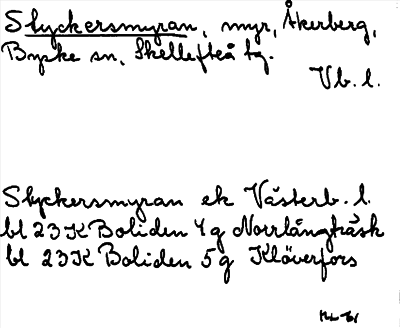 Slyckersmyran, myr, Åkerberg,
Byske sn, Skellefteå tg.
Vb. l.
Slyckersmyran ek Västerb. l.
bl 23K Boliden 4g Norrlångträsk
bl 23K Boliden 5g Klöverfors